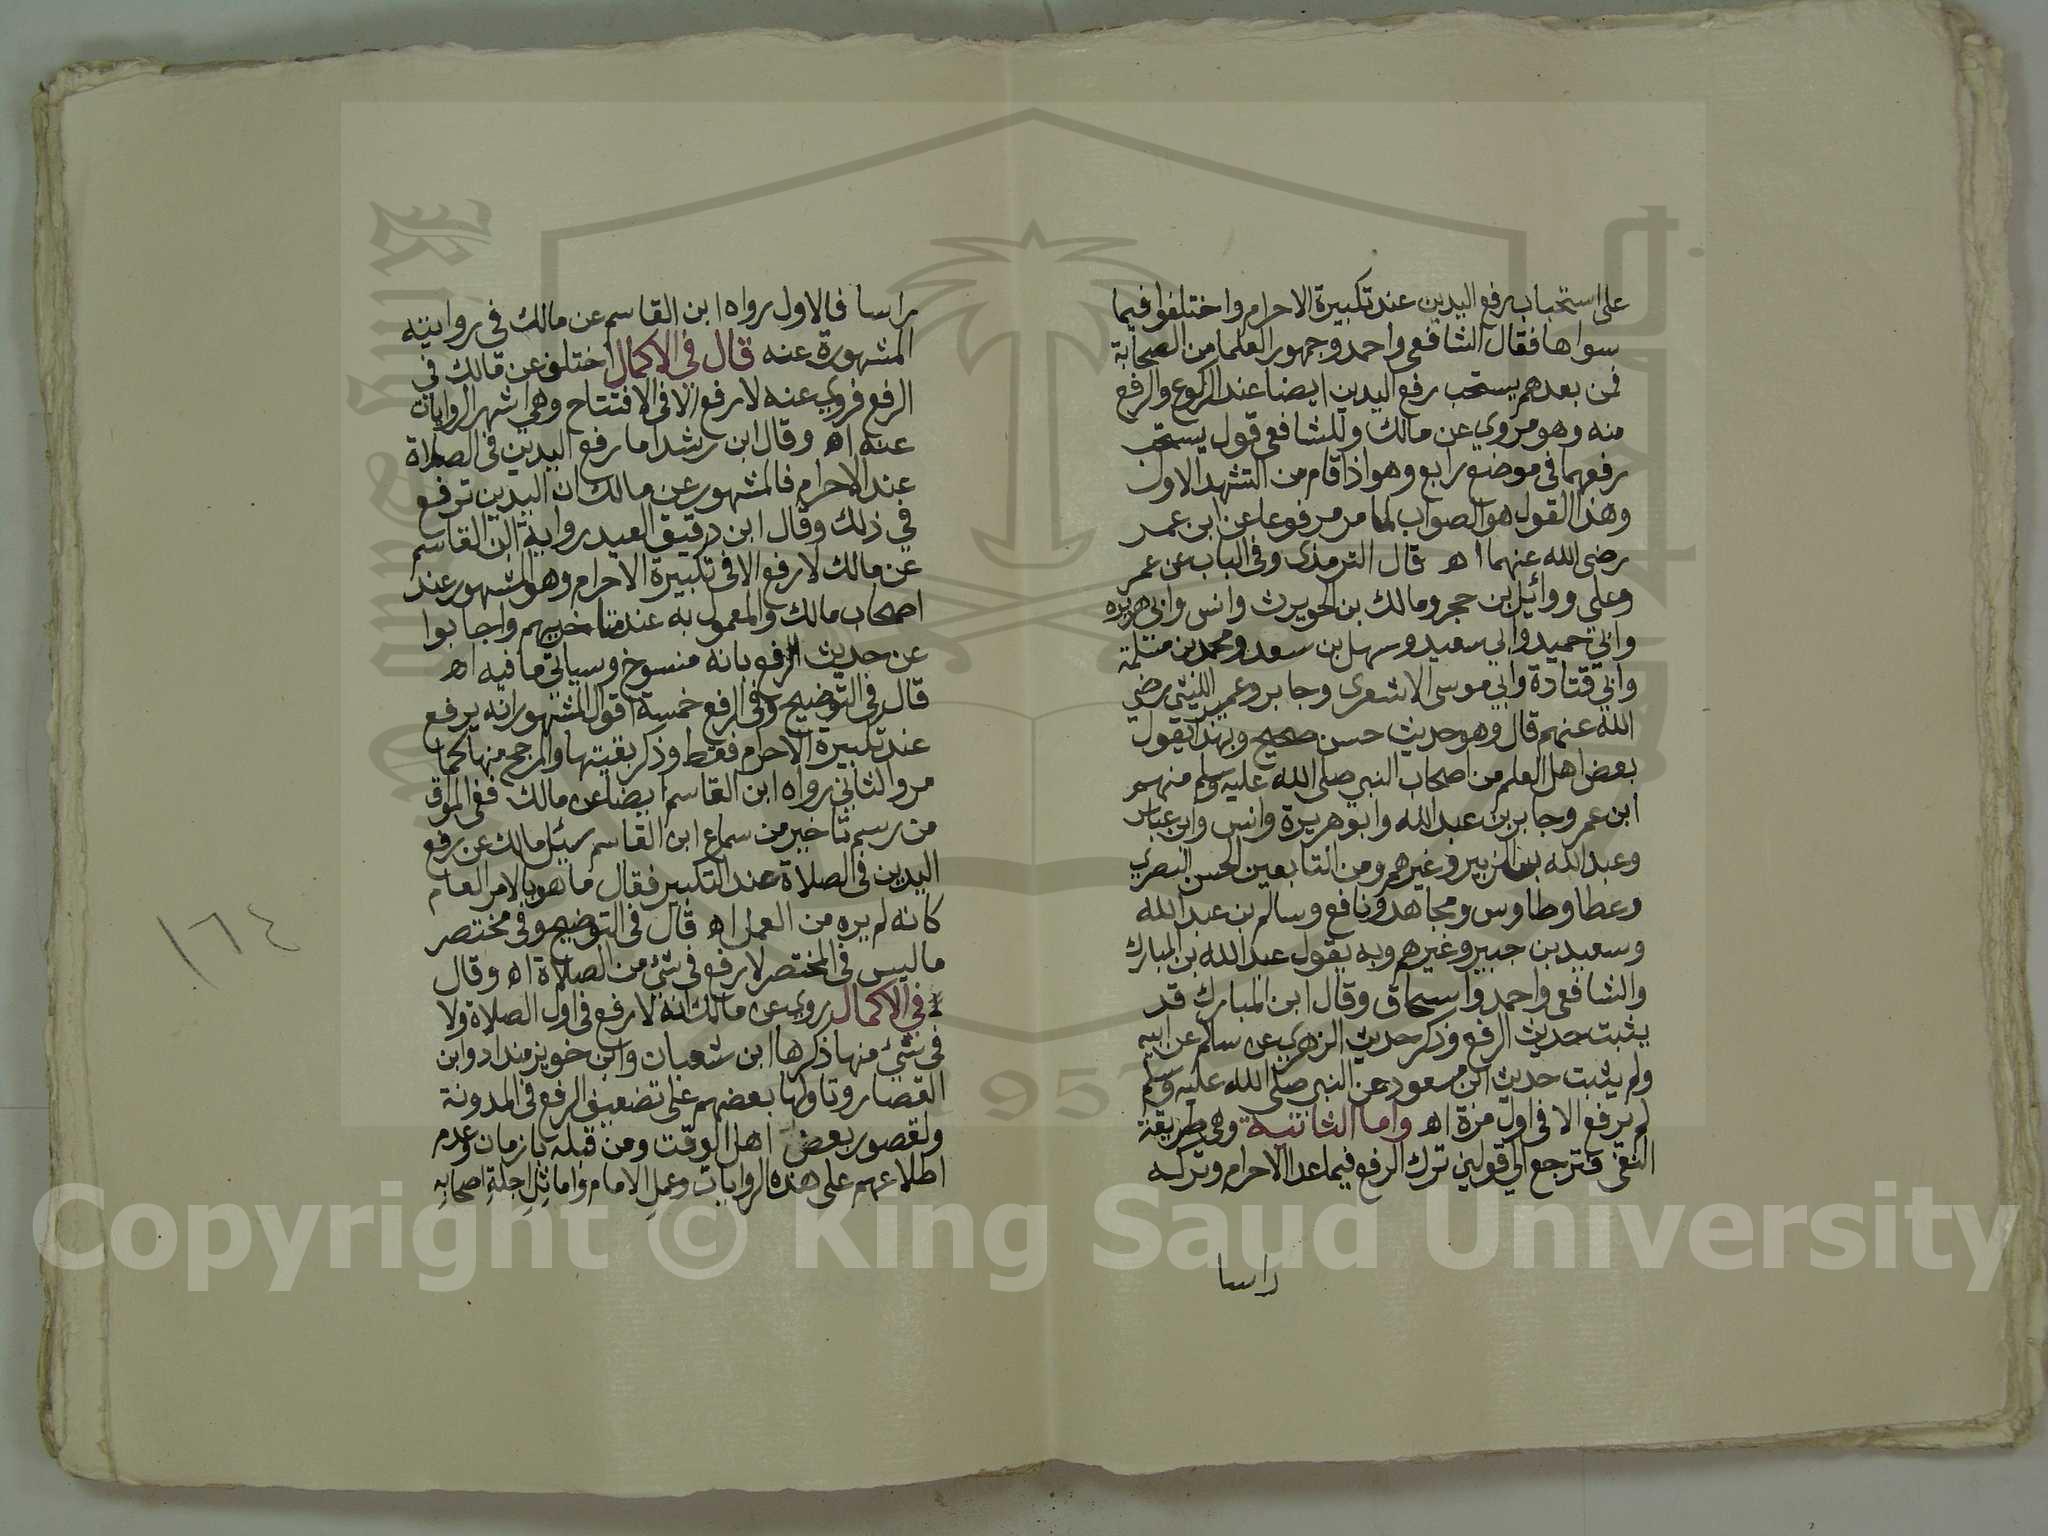 على استحباب رفع اليدين عند تكبيرة الاحرام واختلفوا فيما
سواها فقال الشافعي واحمد وجمهور العلما من الصحابة
فمن بعدهم يستحب رفع اليدين ايضا عند الركوع والرفع
منه وهو مروي عن مالك وللشافعي قول يستحب
رفعهما في موضع رابع وهو اذا قام من التشهد الاول
وهذا القول هو الصواب لما مر مرفوعا عن ابن عمر
رضى الله عنهما اه قال الترمذى وفى الباب عن عمر
وعلى ووائل بن حجر ومالك بن الحويرث وانس وابي هريره
وابي حميد وابي سعيد وسهل بن سعد ومحمد بن مسلمة
وابي قتادة وابي موسى الاشعرى وجابر وعمير الليثي رضي
الله عنهم قال وهو حديث حسن صحيح وبهذا يقول
بعض اهل العلم من اصحاب النبي صلى الله عليه وسلم منهم
ابن عمر وجابر بن عبد الله وابو هريرة وانس وابن عباس
وعبد الله بن الزبير وغيرهم ومن التابعين الحسن البصري
وعطا وطاوس ومجاهد ونافع وسالم بن عبد الله
وسعيد بن جبير وغيرهم وبه يقول عبد الله بن المبارك
والشافعي واحمد واسحاق وقال ابن المبارك قد
يثبت حديث الرفع وذكر حديث الزهري عن سالم عن ابيه
ولم يثبت حديث ابن مسعود عن النبي صلى الله عليه وسلم
لم يرفع الا فى اول مرة اه واما الثانية وهي طريقة
النفي فترجع الي قولين ترك الرفع فيما عدا الاحرام وتركه
راسا
راسا فالاول رواه ابن القاسم عن مالك في روايته
المشهورة عنه قال في الاكمال اختلف عن مالك في
الرفع فروي عنه لا رفع الا في الافتتاح وهي اشهر الروايات
عنه اه وقال ابن رشد اما رفع اليدين فى الصلاة
عند الاحرام فالمشهور عن مالك ان اليدين ترفع
في ذلك وقال ابن دقيق العيد رواية ابن القاسم
عن مالك لا رفع الا في تكبيرة الاحرام وهو المشهور عند
اصحاب مالك والمعمول به عند متاخريهم واجابوا
عن حديث الرفع بانه منسوخ وسياتي ما فيه اه
قال في التوضيح وفي الرفع خمسة اقوال المشهور انه يرفع
عند تكبيرة الاحرام فقط وذكر بقيتها والمرجح منها كما
مر والثاني رواه ابن القاسم ايضا عن مالك ففي
من رسم من سماع ابن القاسم سئل مالك عن رفع
اليدين في الصلاة عند التكبير فقال ما هو بالامر العام
كانه لم يره من العمل اه قال في التوضيح وفي مختصر
ما ليس في المختصر لا رفع في شئ من الصلاة اه وقال
في الاكمال روي عن مالك انه لا رفع في اول الصلاة ولا
في شئ منها ذكرها ابن شعبان وابن خويز منداد وابن
القصار وتاولها بعضهم على تضعيف الرفع في المدونة
ولقصور بعض اهل الوقت ومن قبله بازمان وعدم
اطلاعهم على هذه الروايات وعمل الامام واماثل اجلة اصحابه
١٦٤
Copyright © King Saud University